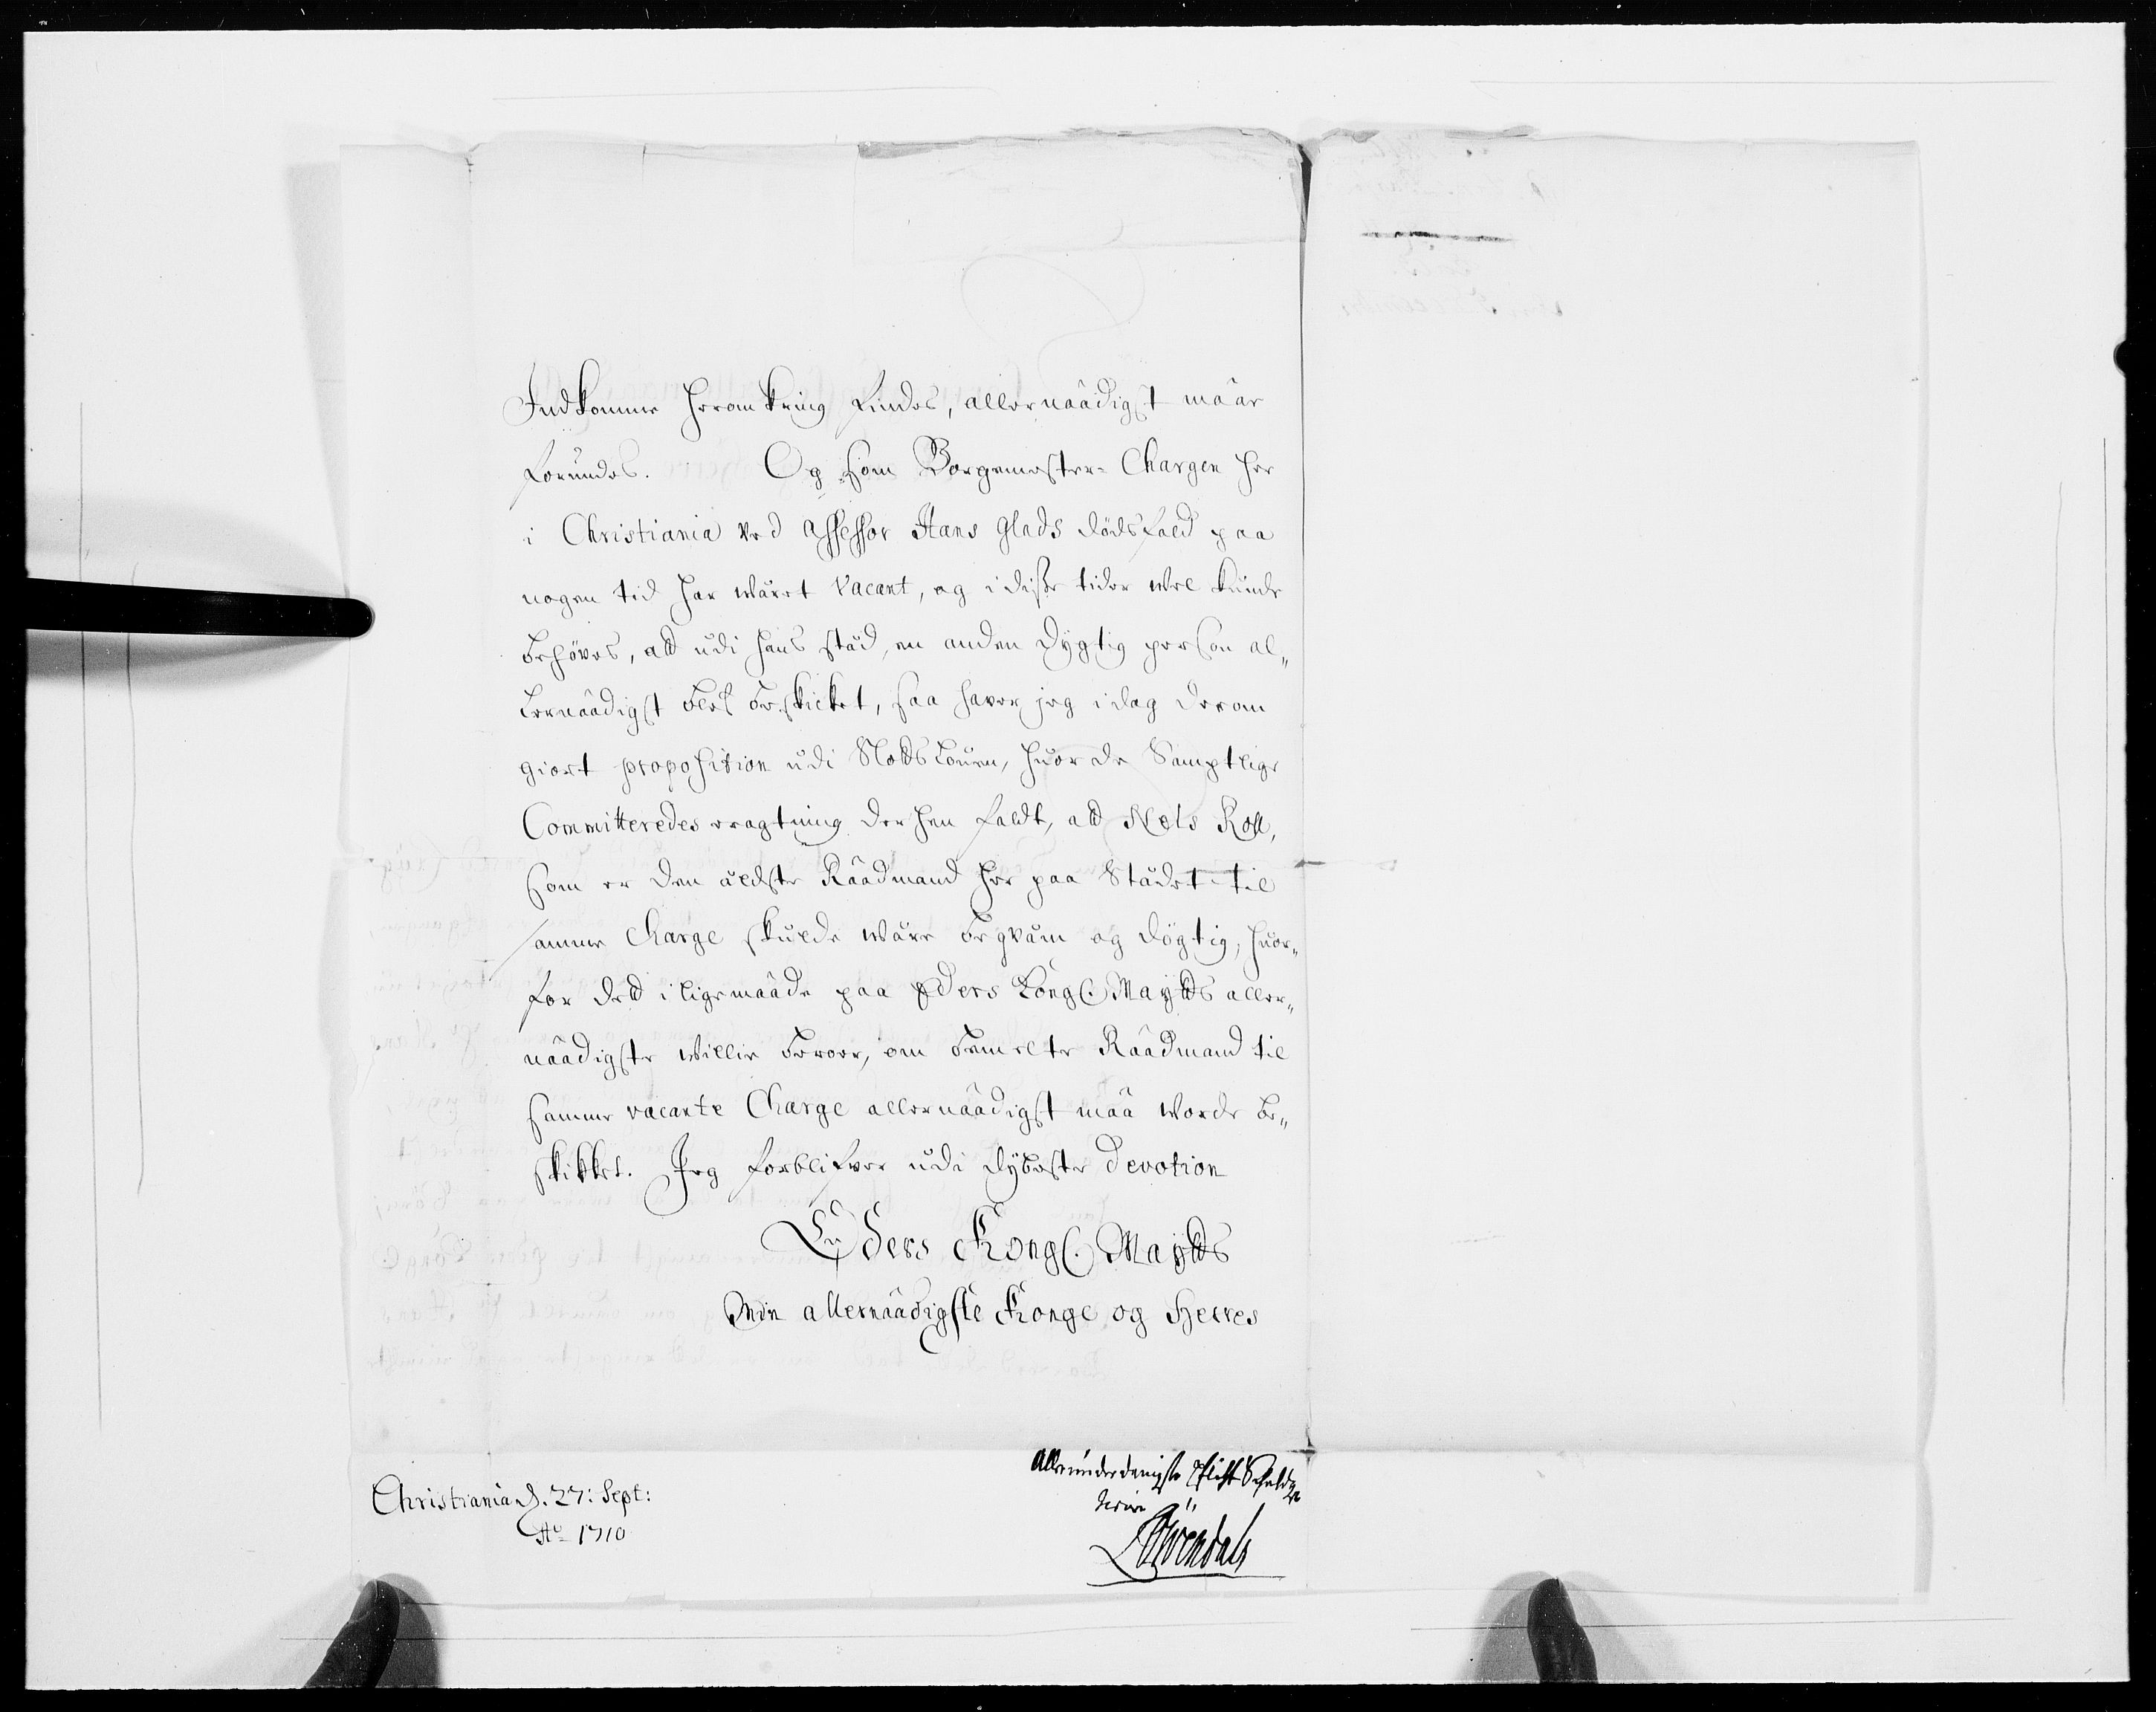 Indkomme heromkring findes, allernaadigst maa ar
forundes. Og som Borgemester-Chargen her
i Christiania ved Assessor Hans Glads dödsfald paa
nogen tid har wäret Vacant, og i disse tider wel kunde
behöves, at udi hans städ, en anden dygtig person al„
lernaadigst blef beskicket, saa haver jeg i dag derom
giort proposition udi Slotsloven, huor de Samptlige
Committeredes eragtning der hen faldt, at Niels Roll,
som er den äldste Raadmand her paa Städet til
samme Charge skulde wäre beqväm og dögtig, huor„
for det i ligemaade paa Eders Kongl. Mayts aller„
naadigste willie beroer, om bemelte Raadmand til
samme vacante Charge allernaadigst maa worde be„
skikket. Jeg forblifver udi dybeste devotion
Eders Kongl. Mayts
Min allernaadigste Konge og Herres
Christiania d. 27: Sept:
Ao 1710
Allerunderdanigste Plicht Schuldigste
tiener
Löwendals